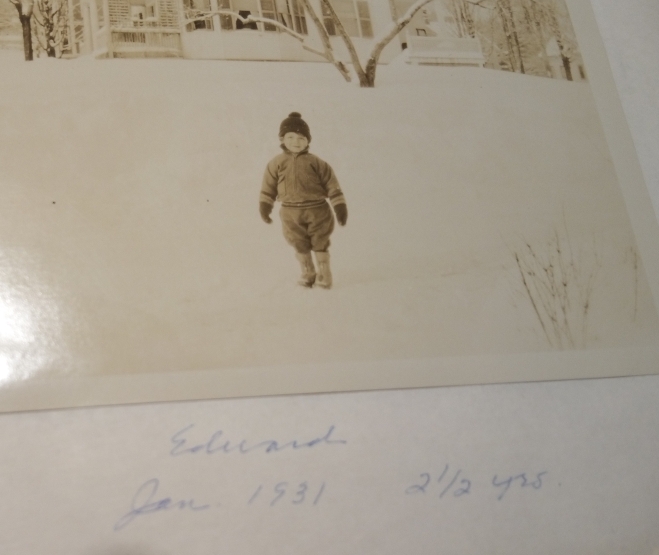 Edward
Jan. 1931 2 1/2 yrs.